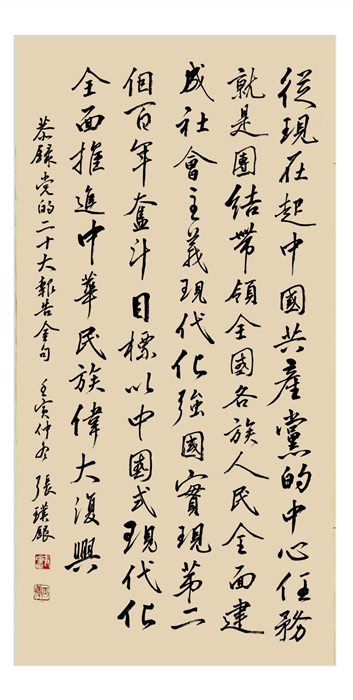 從現在起中國共產黨的中心任務
就是團結帶領全國各族人民全面建
成社會主義現代化強國實現第二
個百年奮斗目標以中國式現代化
全面推進中華民族偉大復興
恭錄党的二十大報告金句 壬寅仲冬 張